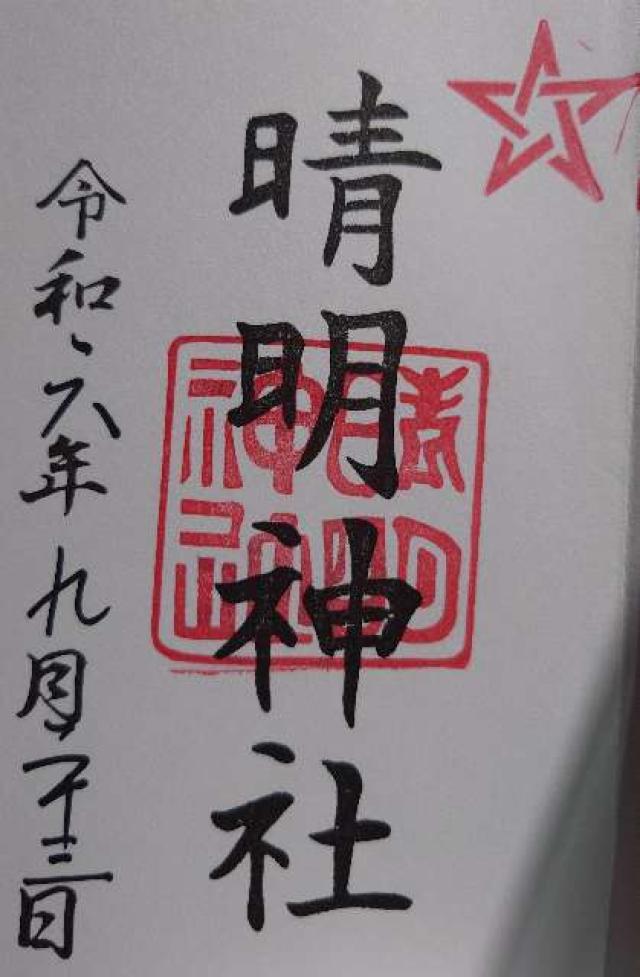 晴明神社
晴明
神社
令和六年九月二十三日